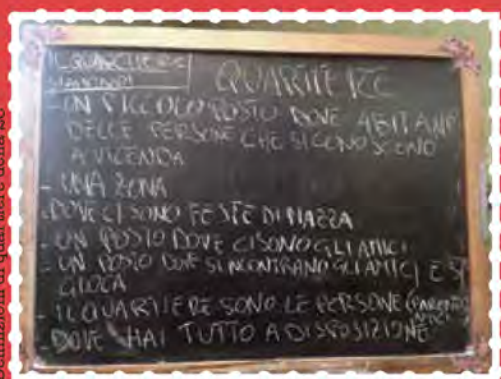 IL QUARTIERE
QUARTIERE
- UN PICCOLO POSTO DOVE ABITANO
DELLE PERSONE CHE SI CONOSCONO
A VICENDA
- UNA ZONA
- DOVE CI SONO FESTE DI PIAZZA
- UN POSTO DOVE CI SONO GLI AMICI
- UN POSTO DOVE SI INCONTRANO GLI AMICI E SI
GIOCA
- IL QUARTIERE SONO LE PERSONE
DOVE HAI TUTTO A DISPOSIZIONE